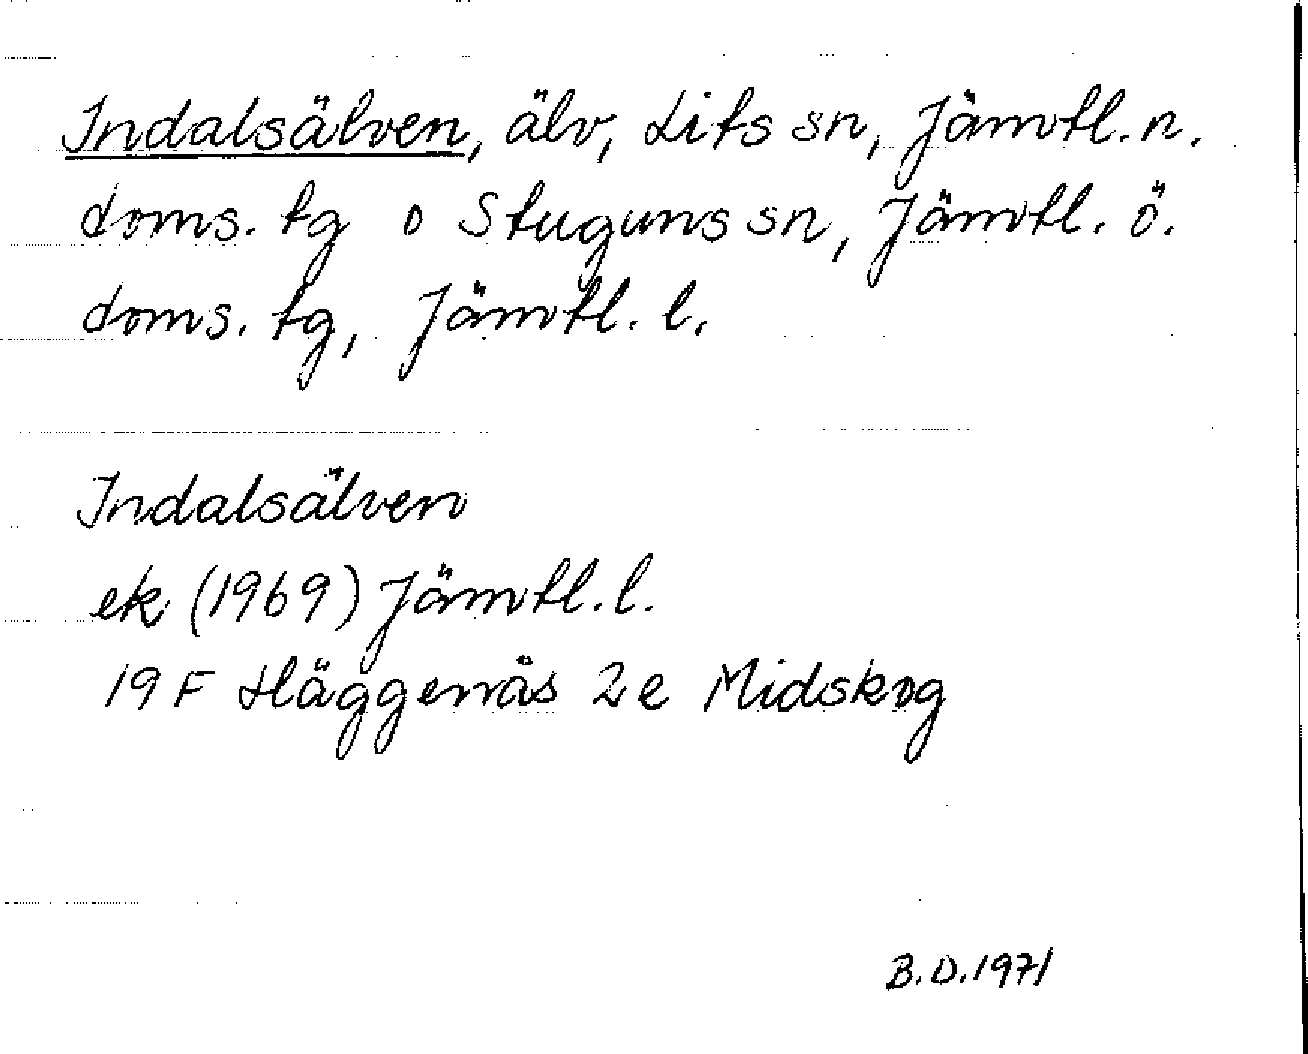 Indalsälven, älv, Lits sn, Jämtl. n.
doms. tg o Stuguns sn, Jämtl. ö.
doms. tg, Jämtl. l.
Indalsälven
ek (1969) Jämtl. l.
19 F Häggenås 2 e Midskog
B.D. 1971